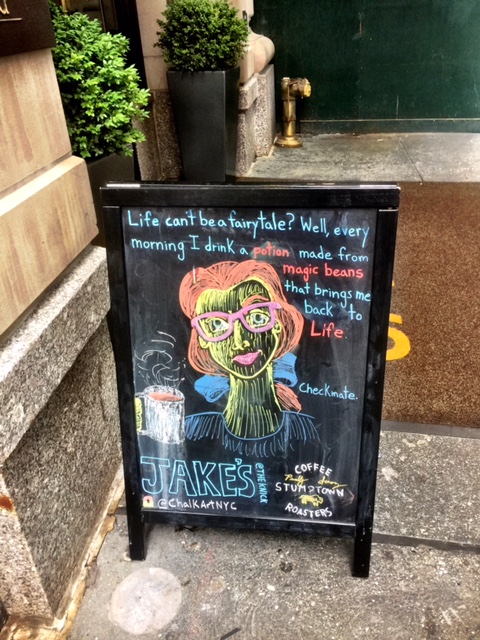 Life can't be a fairytale? Well, every
morning I drink a potion made from
magic beans
that brings me
back to
Life.
Checkmate.
JAKE'S
@THE KNICK
@ChalkArtNYC
COFFEE
STUMPTOWN
ROASTERS